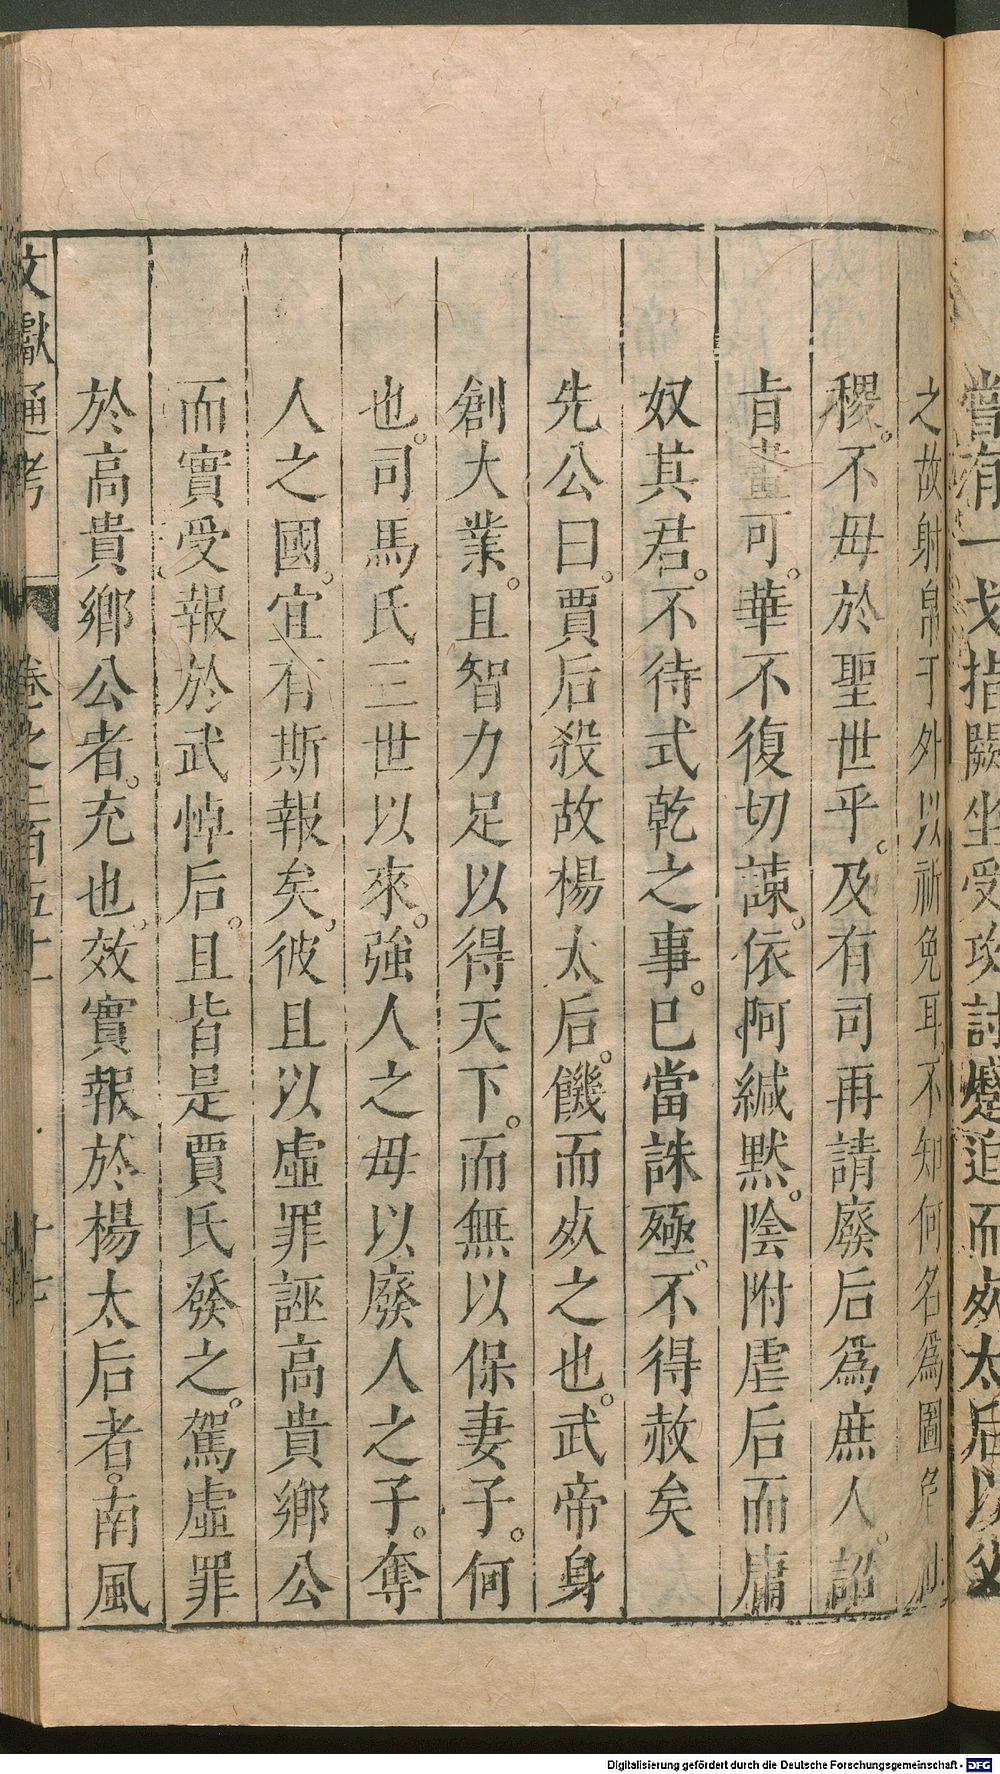 嘗有一戈指闕坐受攻討蹙迫而死太后以
之故射帛于外以祈免耳不知何名爲圖危
稷。不毋於聖世乎。及有司再請廢后爲庶人。詔
肯畫可。華不復切諫。依阿緘默。陰附虐后而庸
奴其君。不待式乾之事。已當誅殛。不得赦矣
先公曰。賈后殺故楊太后。饑而死之也。武帝身
創大業。且智力足以得天下。而無以保妻子。何
也。司馬氏三世以來。強人之毋以廢人之子。奪
人之國。宜有斯報矣。彼且以虛罪誣高貴鄉公
而實受報於武悼后。且皆是賈氏發之。駕虛罪
於高貴鄉公者。充也。效實報於楊太后者。南風
文獻通考 卷之二百五十二 十七
Digitalisierung gefördert durch die Deutsche Forschungsgemeinschaft - DFG